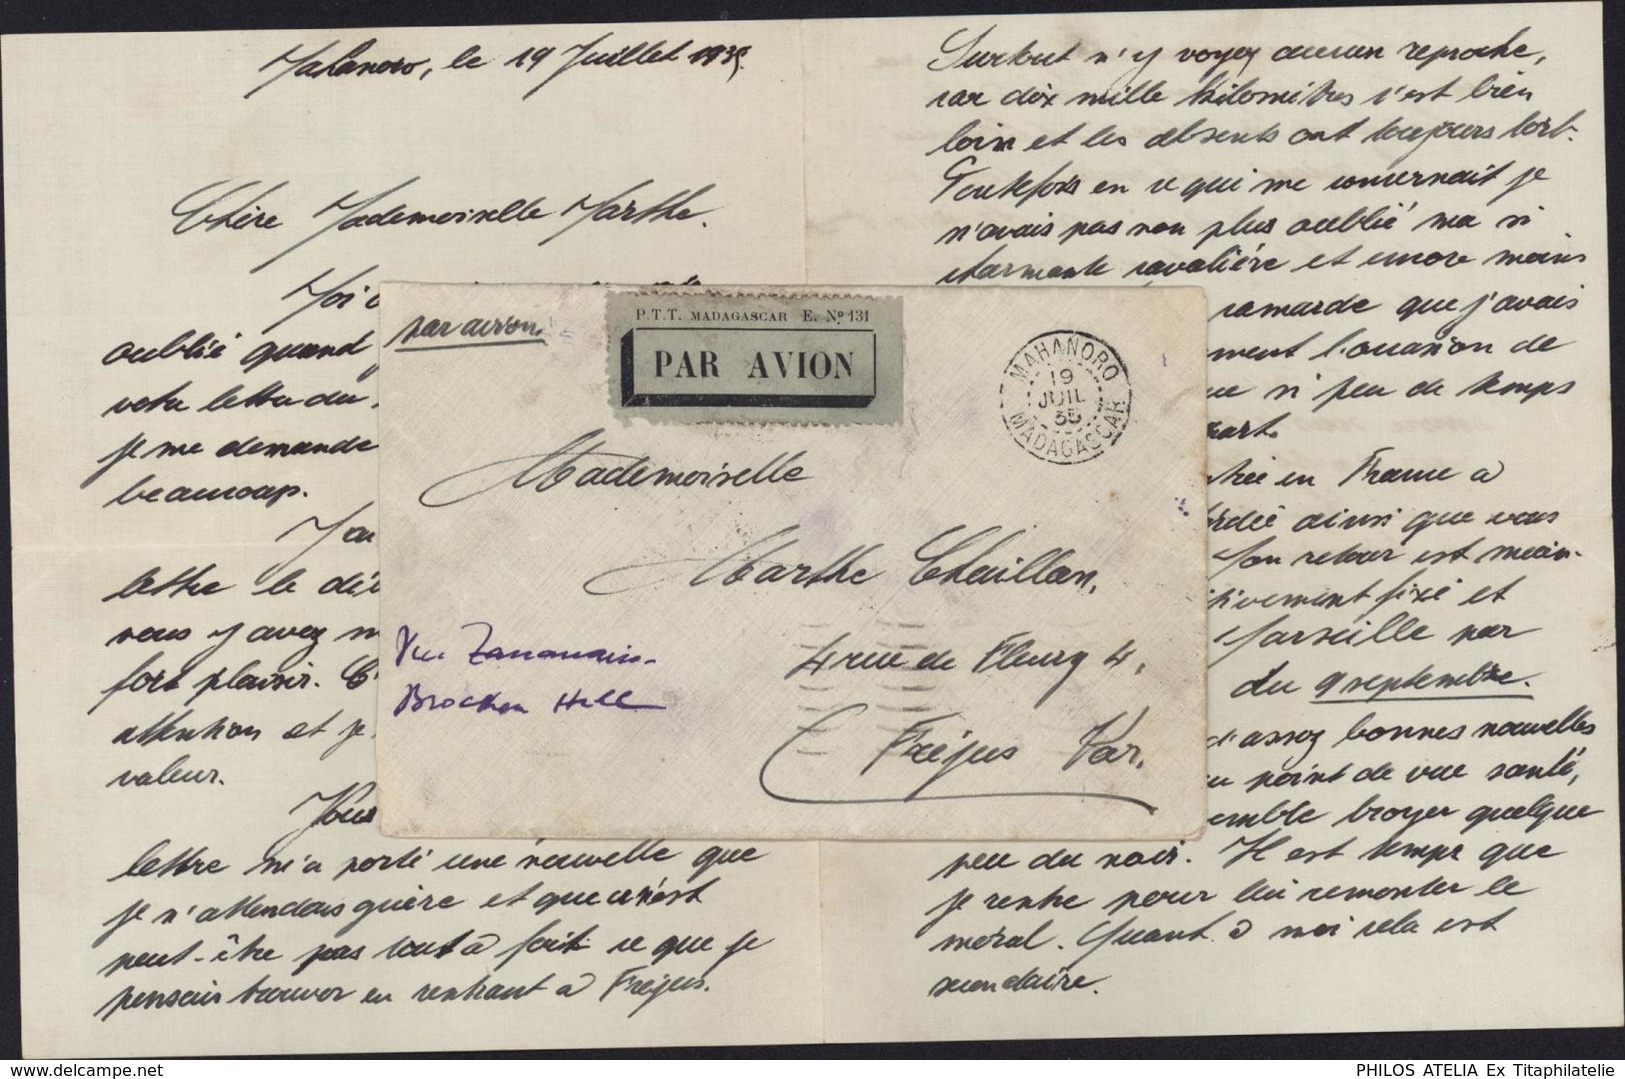 Mahanoro, le 19 Juillet 1935.
Chère Mademoiselle Marthe.
Moi
oublié quand
votre lettre du
je me demande
beaucoup.
lettre le
vous y avez
fort plaisir. C'
attention et je
valeur.
Vous
lettre m'a porté une nouvelle que
je n'attendais guère et que ce n'est
peut-être pas tout à fait ce que je
pensais trouver en rentrant à Fréjus.
Surtout n'y voyez aucun reproche,
car dix mille kilomètres c'est bien
loin et les absents ont toujours tort.
Toutefois en ce qui me concernait je
n'avais pas non plus oublié ma si
charmante cavalière et encore moins
camarde que j'avais
ment l'occasion de
ue si peu de temps
part.
trée en France a
rdée ainsi que vous
Mon retour est main-
tivement fixé et
Marseille par
du 9 septembre.
d'assez bonnes nouvelles
u point de vue santé,
emble broyer quelque
peu du noir. Il est temps que
je rentre pour lui remonter le
moral. Quant à moi cela est
secondaire.
par avion.
P.T.T. MADAGASCAR E. Nº 131
PAR AVION
MAHANORO
19
JUIL
35
MADAGASCAR
Mademoiselle
Marthe Chaillan,
4 rue de Fleury 4,
Fréjus Var.
Via
Brocken Hill
PHILOS ATELIA Ex Titaphilatelie